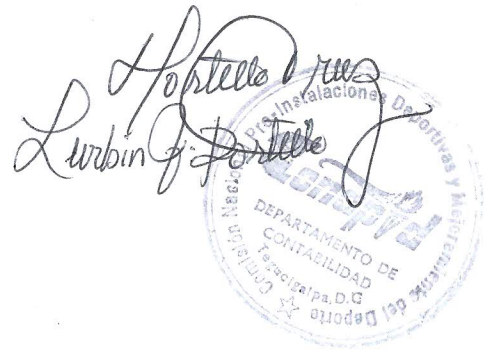 Lurbin J. Portillo
Comisión Nacional Pro-Instalaciones Deportivas y Mejoramiento del Deporte
Conapid
DEPARTAMENTO DE
CONTABILIDAD
Tegucigalpa, D.C